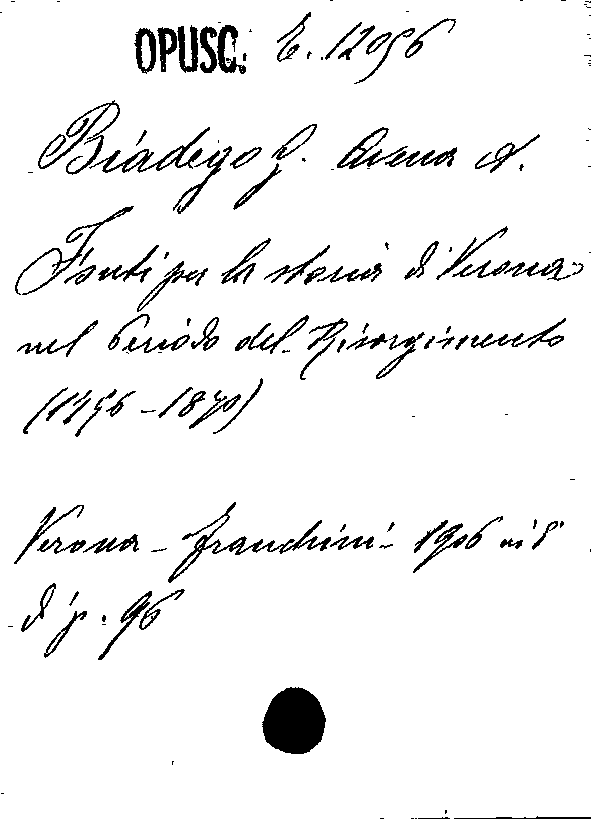 OPUSC. E. 12056
Biadego G. Avena A.
Fonti per la storia di Verona
nel Periodo del Risorgimento
(1796-1870)
Verona - Franchini - 1906 in 8°
di p. 96